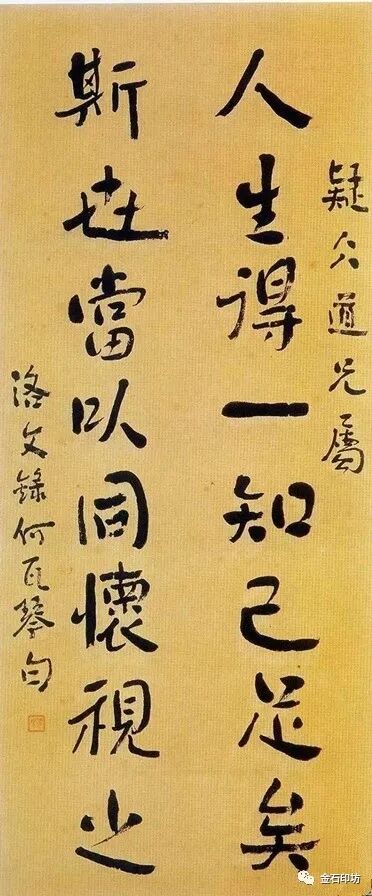 疑仌道兄屬
人生得一知己足矣
斯世當以同懷視之
洛文錄何瓦琴句
金石印坊